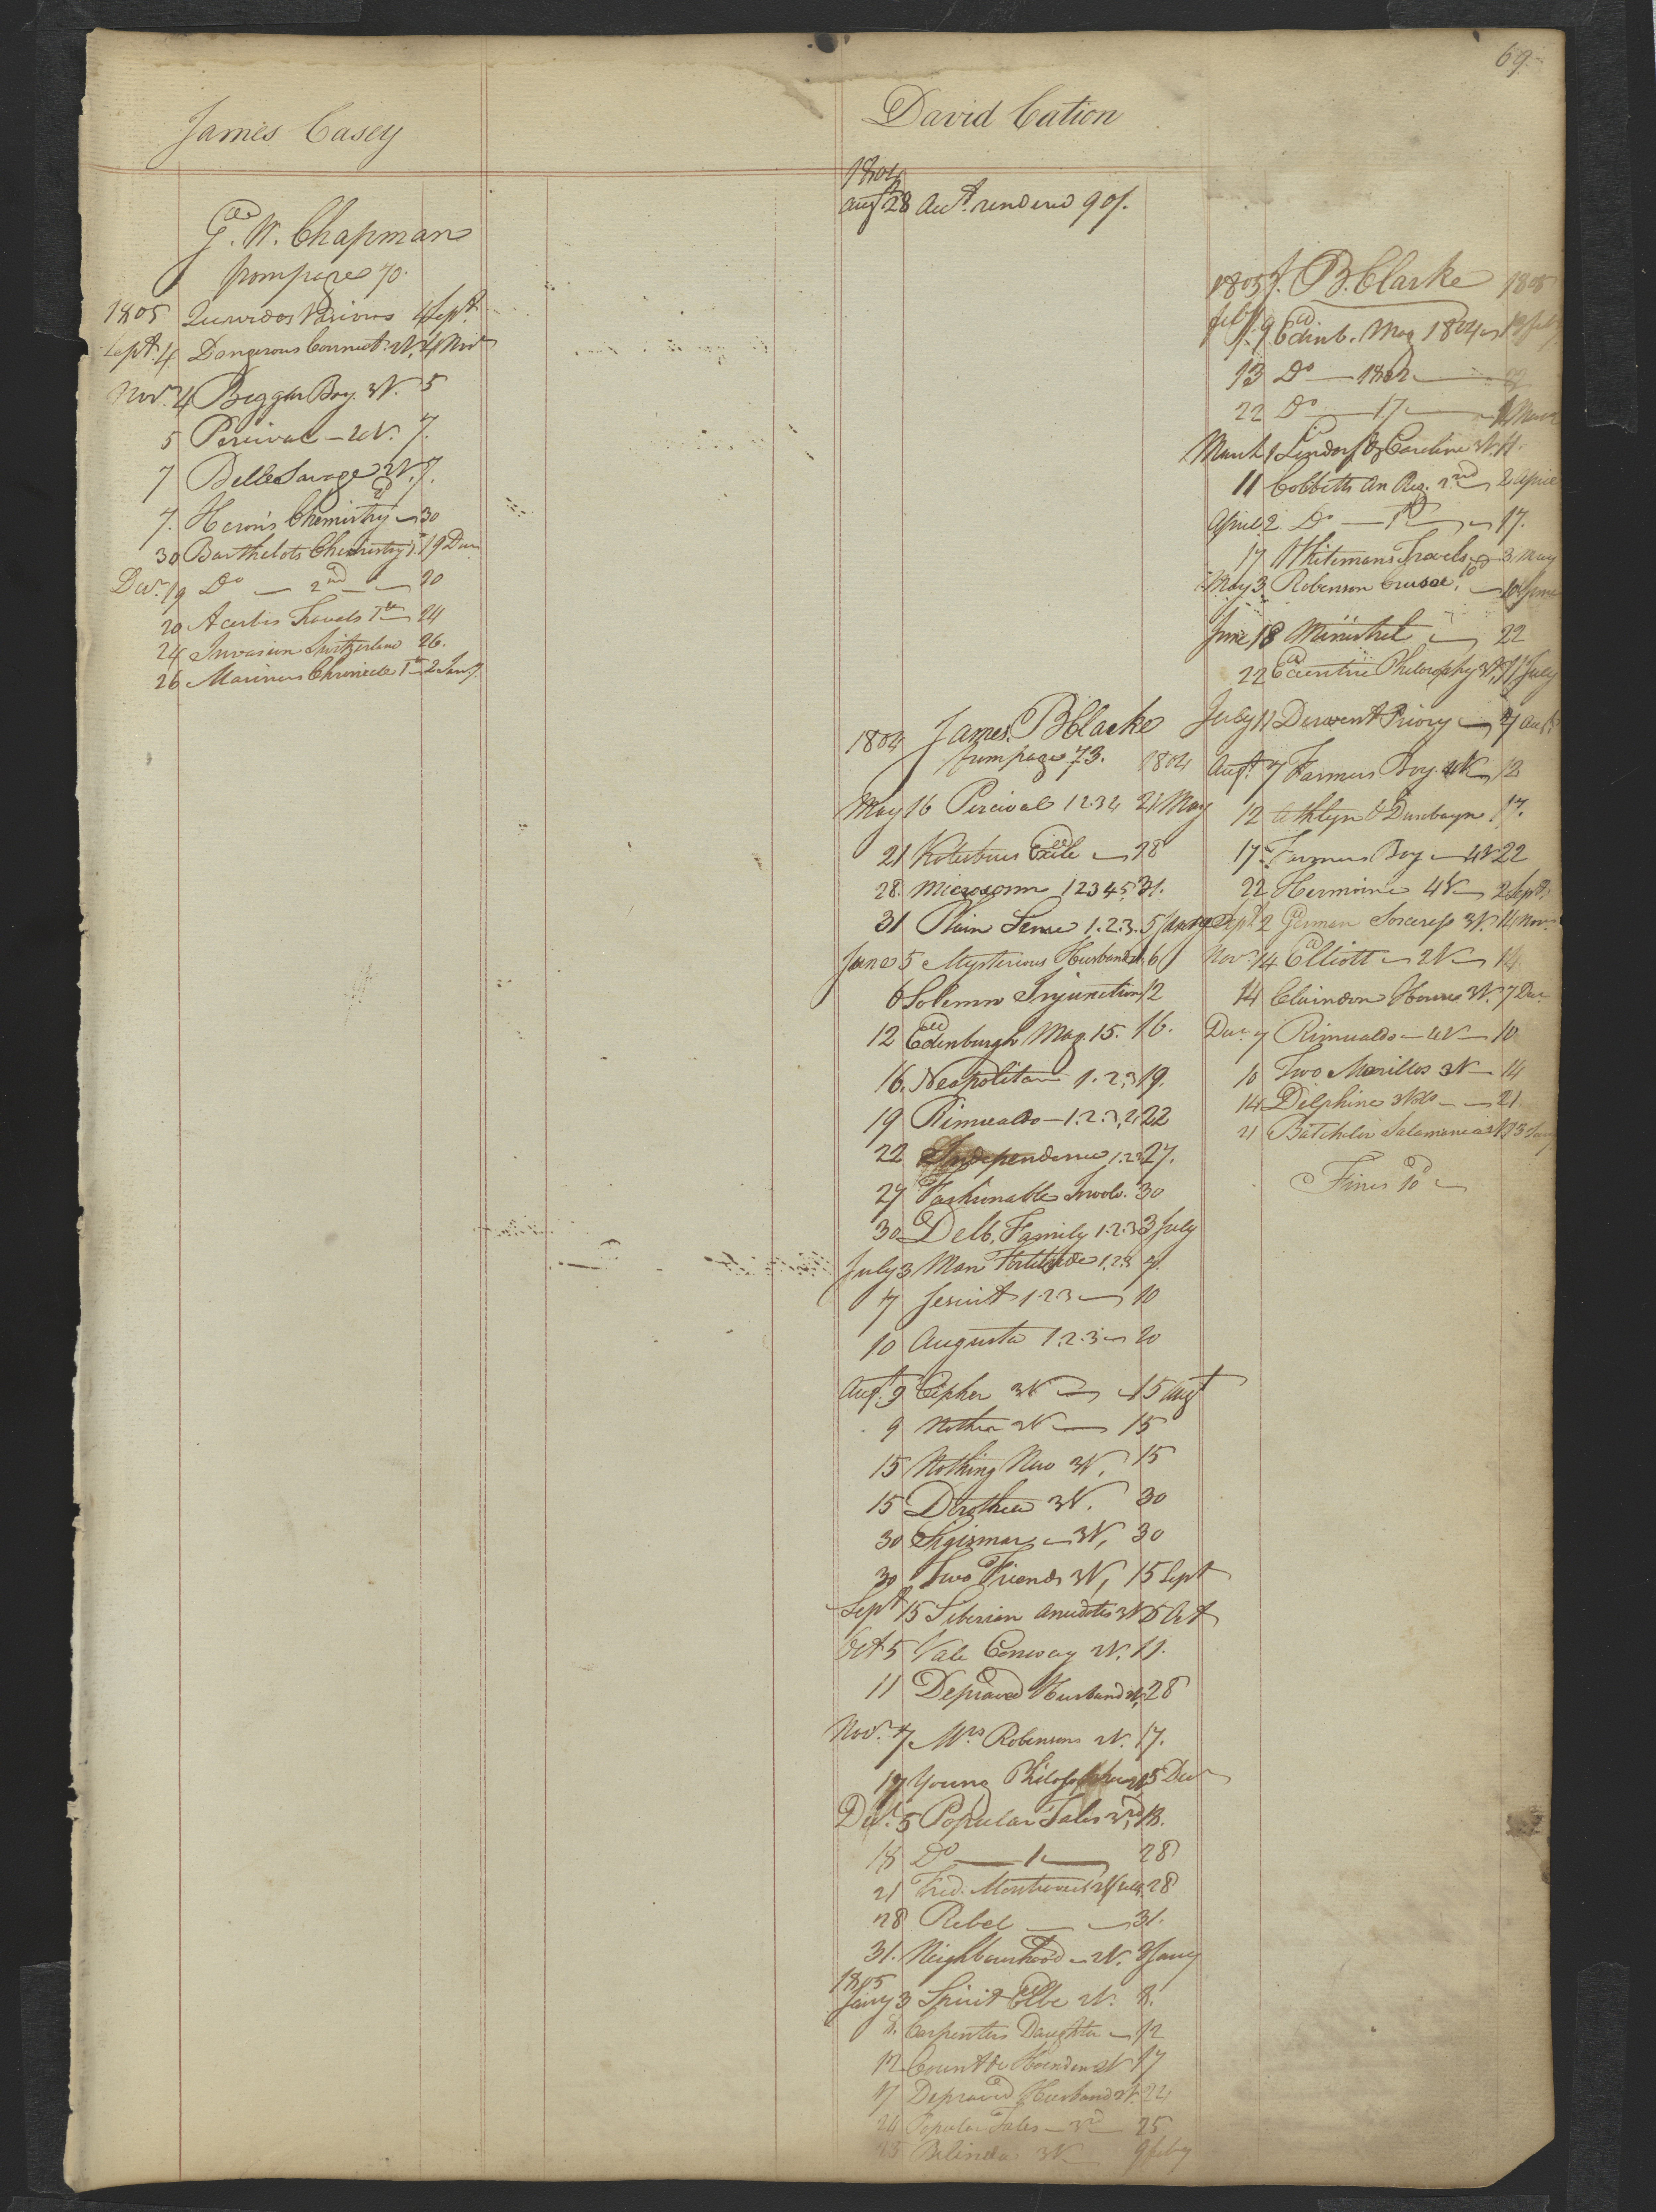 69.
James Casey
G. W. Chapman
from page 70.
1805 Quevedos Visions 4 Sept.
Sept. 4 Dangerous Connect. 2V. 4 Nov
Nov. 4 Beggar Boy 3V. 5
5 Percival — 4V. 7.
7 Belle Savage 2V. 7.
7. Heron's Chemistry 30
30 Barthelots Chemistry 1. 19 Decr
Decr. 19 Do — 2nd — 20
20 Acerbis Travels 1st 24
24 Invasion Switzerland 26.
26 Mariners Chronicle 1st 2 Jany.
David Cation
1804
Augt. 28 Acct. rendered 90/.
1804 James B Clarke
from page 73. 1804
May 16 Percival 1 2 3 4 21 May
21 Kotzebues Exile 28
28. Microcosm 1 2 3 4 5 31.
31 Plain Sense 1. 2. 3. 5 June
June 5 Mysterious Husband 6
6 Solemn Injunction 12
12 Edinburgh Mag. 15. 16.
16. Neapolitan 1. 2. 3 19.
19 Rimualdo — 1. 2. 3. 4 22
22 Independence 1. 2 27.
27 Fashionable Involv. 30
30 Delb. Family 1. 2. 3 3 July
July 3 Man Fortitude 1. 2. 3 7.
7 Jesuit 1. 2. 3 10
10 Augusta 1. 2. 3 20
Augt. 9 Cipher 3V 15 Augt
9 Mother 2V 15
15 Nothing New 3V. 15
15 Dorothea 3V. 30
30 Sigismar 3V. 30
30 Two Friends 3V. 15 Sept
Sept 15 Siberian Anecdotes 3V 5 Oct
Oct 5 Vale Conway 2V. 11.
11 Depraved Husband 2V. 28
Nov. 7. Mrs Robinsons 2V. 17.
17 Young Philosopher 5 Decr
Decr. 5 Popular Tales 2nd 18.
18 Do — 1 — 28
21 Fred. 28
28 Rebel — 31.
31. Neighbourhood 2V. 3 Jany
1805
Jany 3 Spirit Elbe 2V. 8.
8. Carpenters Daughter 12
12 Count de 2V 17
17 Depraved Husband 2V. 24
24 Popular Tales — 3rd 25
25 Belinda 3V. 9 Feby
1805 J. B. Clarke 1805
Feby. 9 Edinb. Mag 1804 13 Feby
13 Do — 1802 — 22
22 Do — 17 — 1 March
March 1 Lindorf & Caroline 3V. 11.
11 Cobbetts An Reg. 2nd 2 April
April 2 Do — 1st 17.
17 Whitemans Travels 3 May
May 3 Robinson Crusoe 18 June
June 18 Minstrel 22
22 Eccentric Philosophy 3V. 11 July
July 11 Derwent Priory 7 Augt
Augt. 7 Farmers Boy 4V. 12
12 Athlyn & Dunbayn 17.
17. Farmers Boy 4V. 22
22 Hermione 4V 2 Sept
Sept 2 German Sorceress 3V. 14 Nov.
Nov. 14 Elliott 2V 14
14 Clarindon House 3V. 7 Decr
Decr. 7 Rimualdo — 4V — 10
10 Two Marillos 3V — 14
14 Delphine 3 Vols — 21.
21 Batchelor Salamanca Jany
Fines